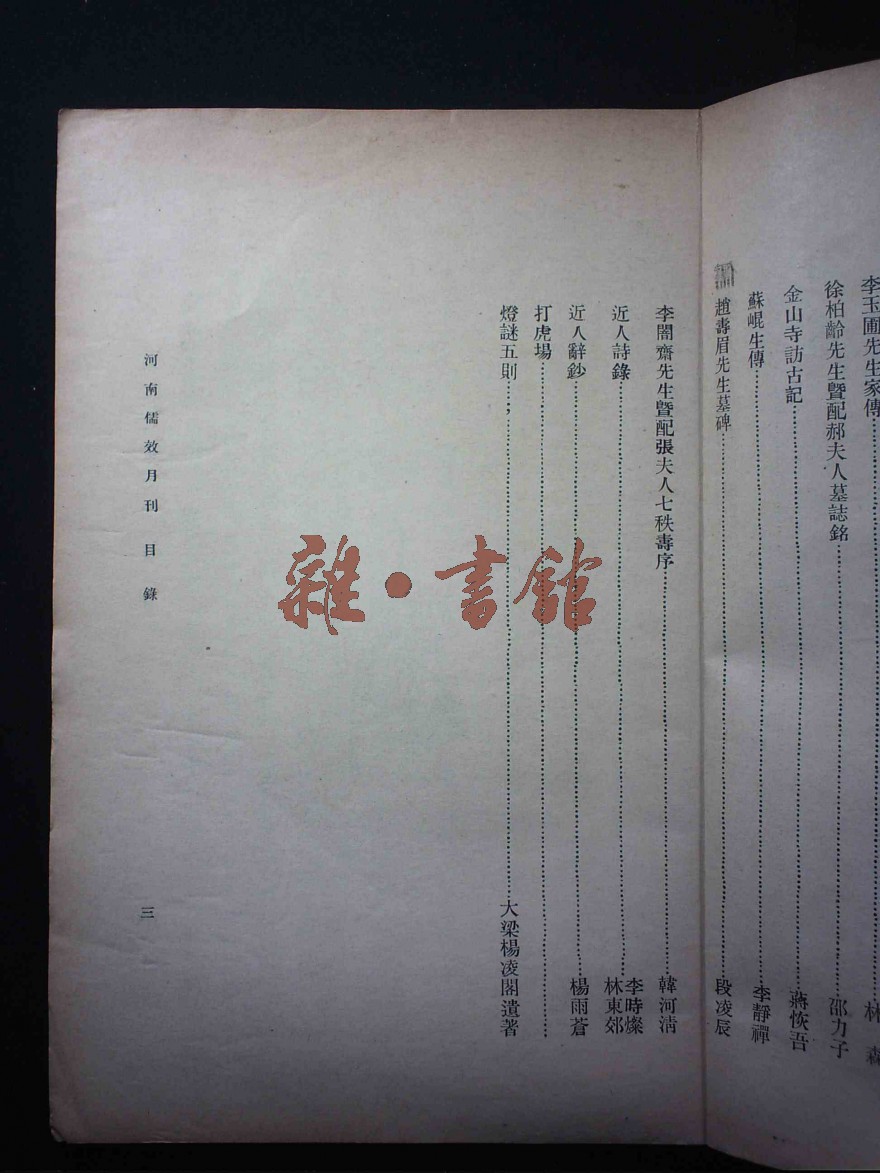 李玉圃先生家傳……林森
徐柏齡先生暨配郝夫人墓誌銘……邵力子
金山寺訪古記……蔣恢吾
蘇崐生傳……李靜禪
趙壽眉先生墓碑……段凌辰
李闇齋先生暨配張夫人七秩壽序……韓河清
近人詩錄……李時燦 林東郊
近人辭鈔……楊雨蒼
打虎場……
燈謎五則……大梁楊凌閣遺著
河南儒效月刊 目錄
三
雜·書館